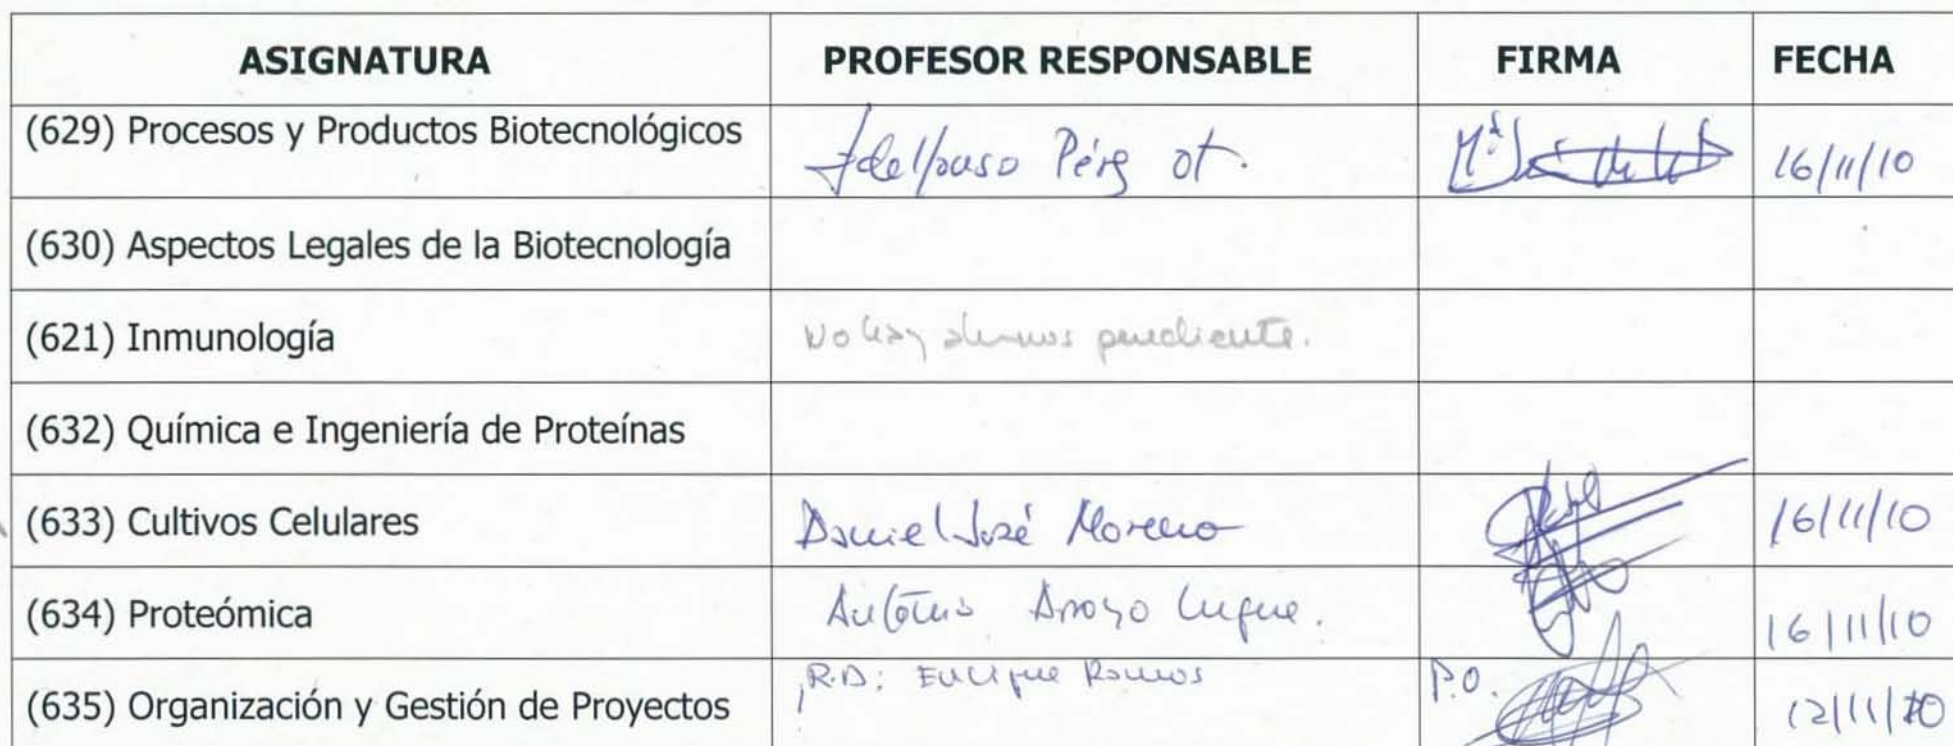 ASIGNATURA PROFESOR RESPONSABLE FIRMA FECHA
(629) Procesos y Productos Biotecnológicos Idelfonso Pérez ot. Mª 16/11/10
(630) Aspectos Legales de la Biotecnología
(621) Inmunología No hay alumnos pendiente.
(632) Química e Ingeniería de Proteínas
(633) Cultivos Celulares Daniel José Moreno 16/11/10
(634) Proteómica Antonio Arroyo Luque. 16/11/10
(635) Organización y Gestión de Proyectos R.D: Enrique Ramos P.O. 12/11/10